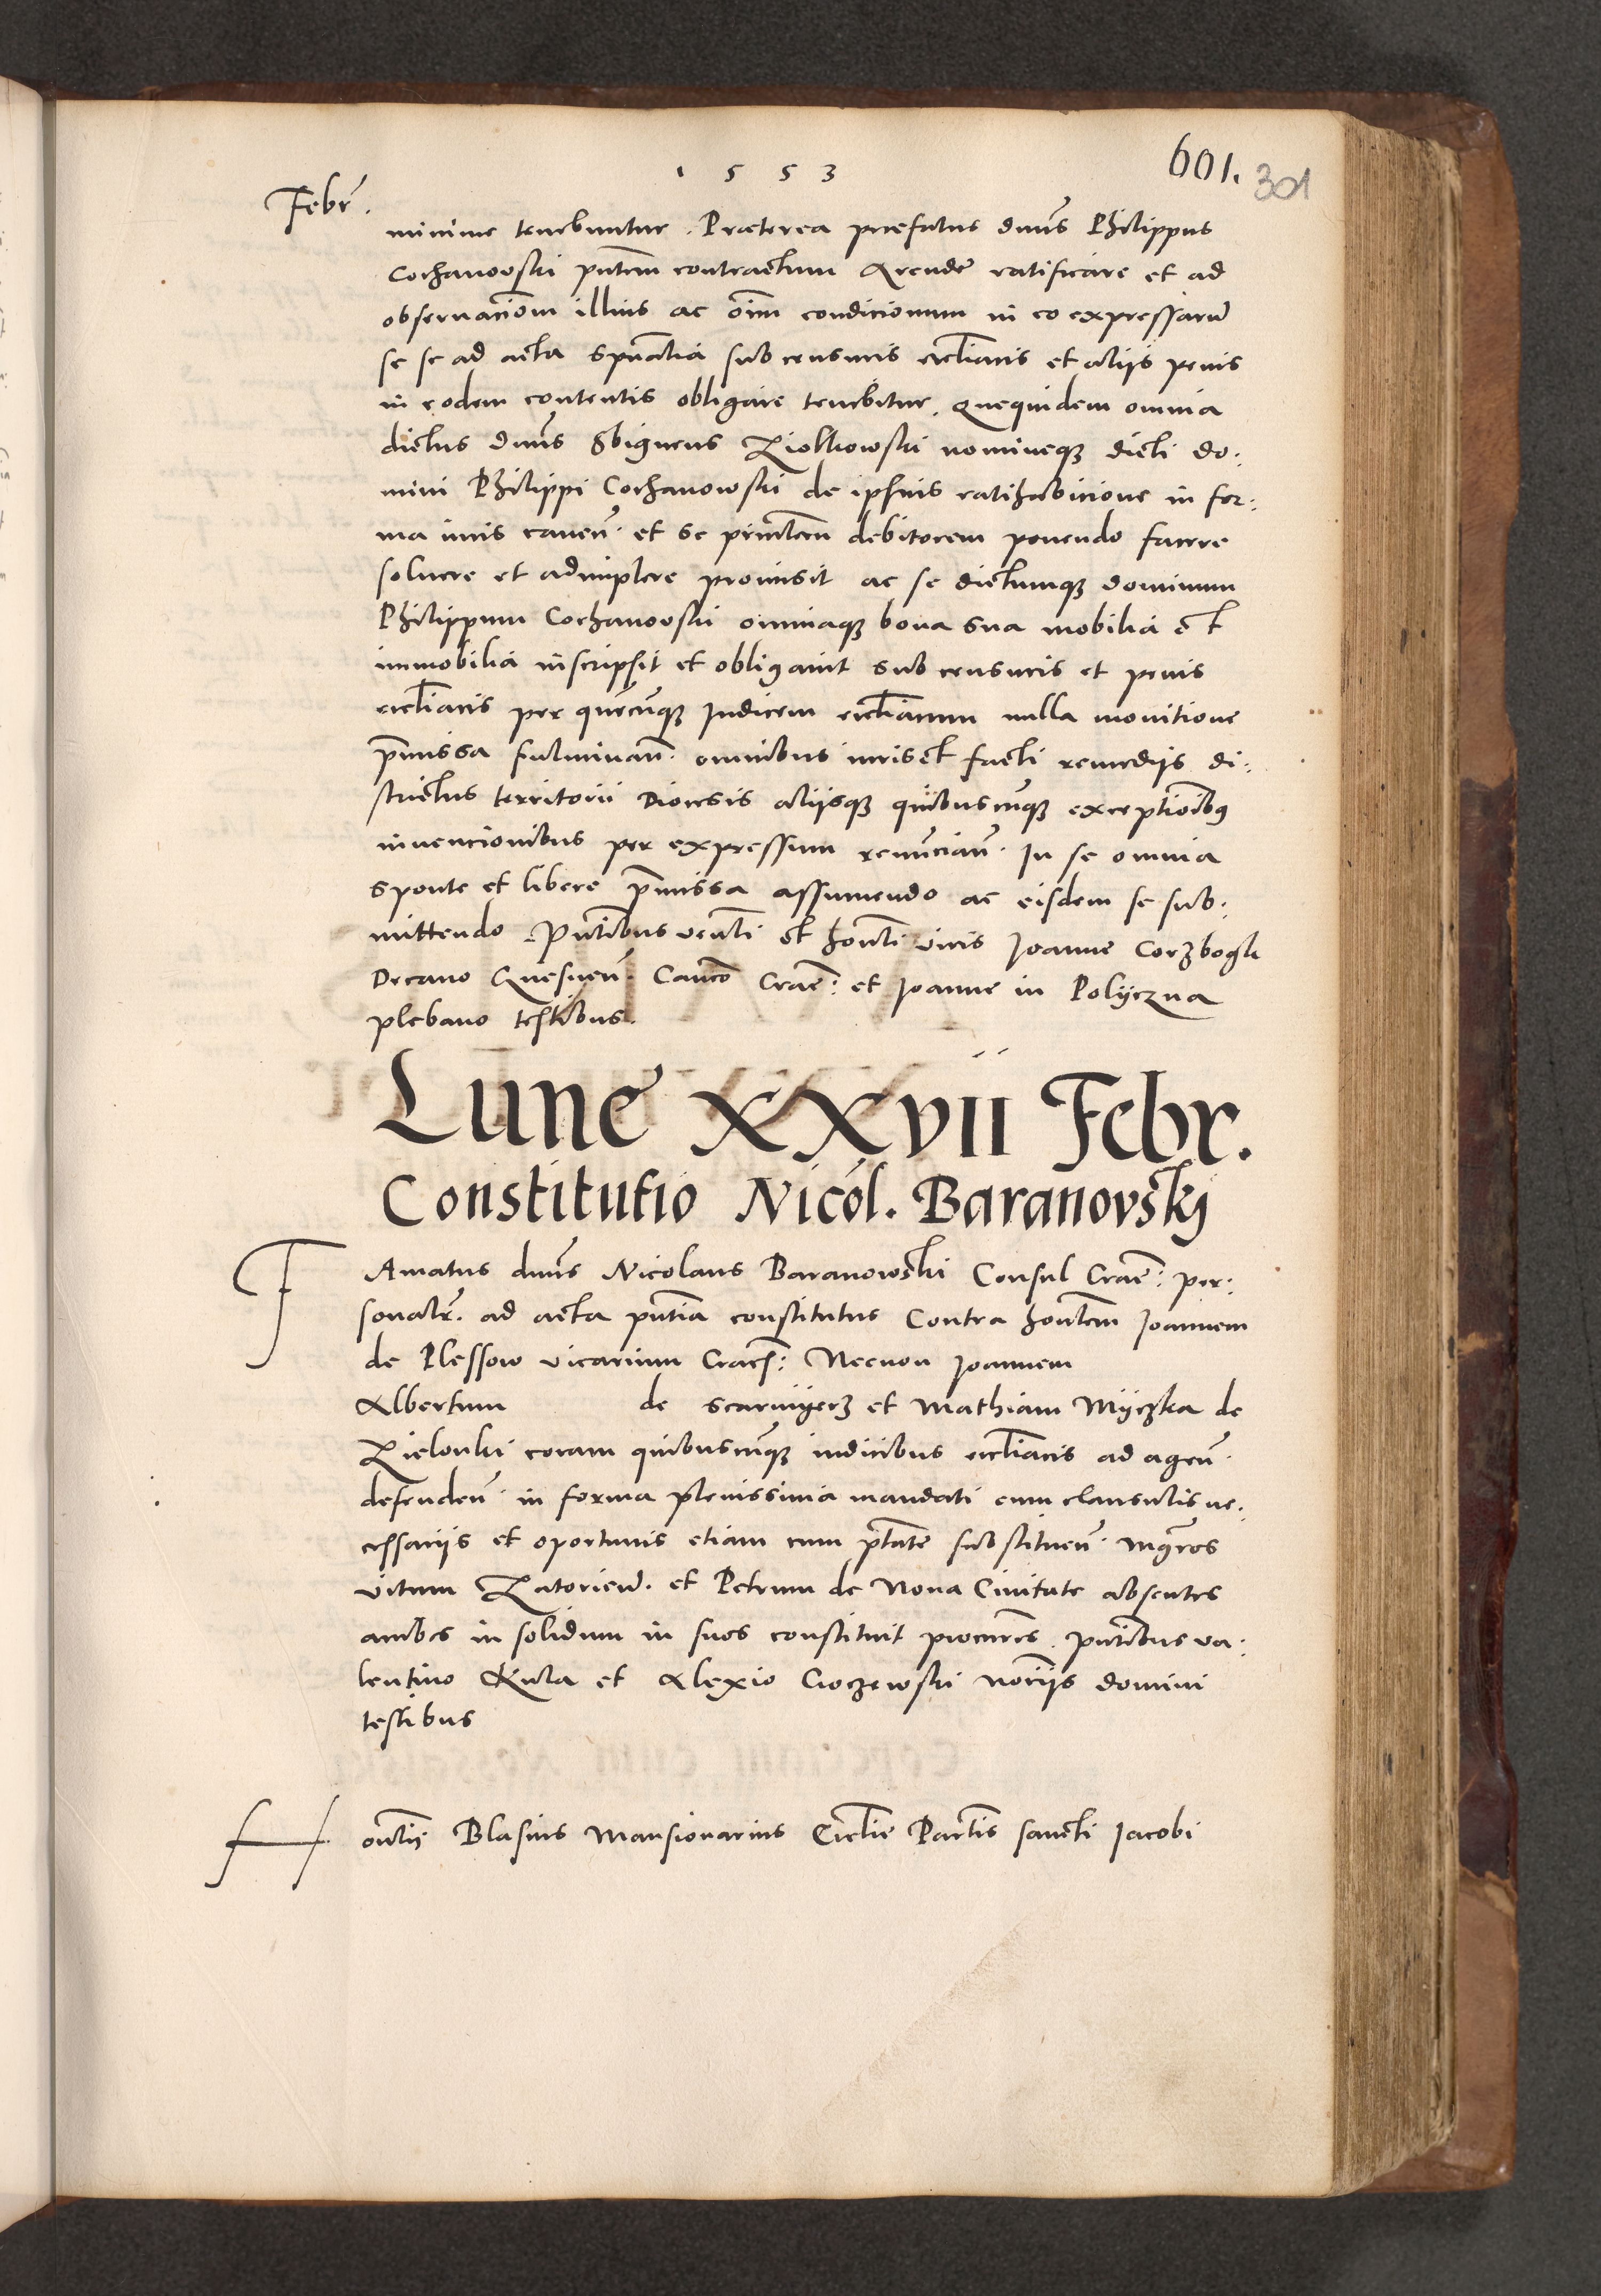 1553
601.
301
Febr̃.
minime tenebuntur. Præterea præfatus dnūs Philippus
Cochanowski pn̄tem contractum Arende ratificare et ad
observaciōem illius ac oīm condicionum in eo expressarū
se se ad acta spūalia sub censuris eccl̄iacis et aliis penis
in eodem contentis obligare tenebitur. Quequidem omnia
dictus dnūs Sbigneus Ziolkowski nomineqꝫ dicti do:
mini Philippi Cochanowski de ipsius ratihabicione in for:
ma iuris caven̄. et se princ̄lem debitorem ponendo facere
solvere et adimplere promisit ac se dictumqꝫ dominum
Philippum Cochanowski omniaqꝫ bona sua mobilia et
immobilia inscripsit et obligavit sub censuris et penis
eccl̄iacis per quēcūqꝫ Judicem eccl̄iacum nulla monitione
p̄missa fulminan̄. omnibus iuris et facti remediis di:
strictus territorii Diocesis aliisqꝫ quibuscūqꝫ exceptioībꝰ
invencionibus per expressum renūncian̄. In se omnia
sponte et libere p̄missa assumendo ac eisdem se sub:
mittendo. Pn̄tibus ven̄li et hon̄li viris Joanne Corzbogk
Decano Gnesnen̄. Canco Crac̄: et Joanne in Polyczna
plebano testibus.
Lune xxvii Febr.
Constitutio Nicol. Baranovskj
FAmatus dnūs Nicolaus Baranowski Consul Crac̄: per:
sonalr̄. ad acta pn̄tia constitutus Contra hon̄lem Joannem
de Plessow vicarium Cracs̄: Necnon Joannem
Albertum de Scarvijerz et Mathiam Myczka de
Zielonki coram quibuscūqꝫ iudicibus eccl̄iacis ad agen̄.
defenden̄. in forma plenissima mandati cum clausulis ne:
cessariis et oportunis etiam cum ptāte substituen̄. Mgr̄os
vitum et Petrum de Nova Civitate absentes
ambos in solidum in suos constituit procurēs. pn̄tibus va:
lentino Kula et Alexio Croczewski nor̄iis domini
testibus
Hon̄lis Blasius Mansionarius Eccl̄ie Parl̄is sancti Jacobi